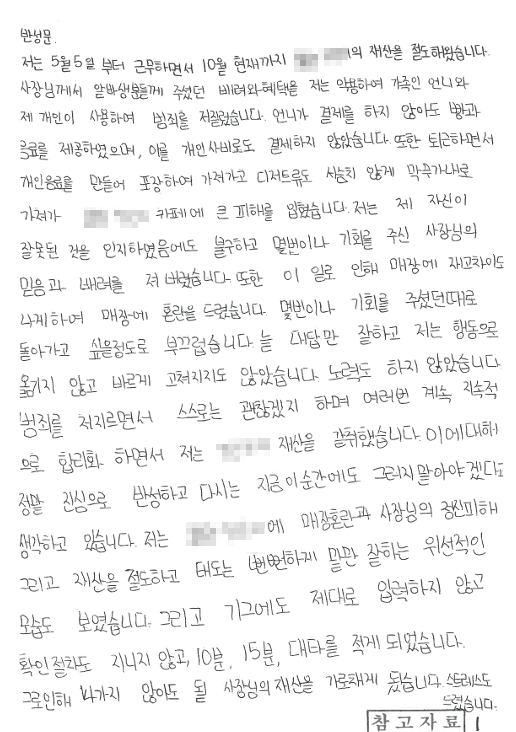 반성문.
저는 5월5일 부터 근무하면서 10월 현재까지 의 재산을 절도해왔습니다.
사장님께서 알바생분들께 주셨던 배려와 혜택을 저는 악용하여 가족인 언니와
제 개인이 사용하여 범죄를 저질렀습니다. 언니가 결제를 하지 않아도 빵과
음료를 제공하였으며, 이를 개인사비로도 결제하지 않았습니다. 또한 퇴근하면서
개인음료를 만들어 포장하여 가져가고 디저트류도 서슴치 않게 막무가내로
가져가 카페에 큰 피해를 입혔습니다. 저는 제 자신이
잘못된 것을 인지하였음에도 불구하고 몇번이나 기회를 주신 사장님의
믿음과 배려를 져 버렸습니다. 또한 이 일로 인해 매장에 재고차이도
나게하여 매장에 혼란을 드렸습니다. 몇번이나 기회를 주셨던때로
돌아가고 싶을정도로 부끄럽습니다. 늘 대답만 잘하고 저는 행동으로
옮기지 않고 바르게 고쳐지지도 않았습니다. 노력도 하지 않았습니다.
범죄를 저지르면서 스스로는 괜찮겠지 하며 여러번 계속 지속적
으로 합리화 하면서 저는 재산을 갈취했습니다. 이에대해
정말 진심으로 반성하고 다시는 지금 이순간에도 그러지 말아야겠다고
생각하고 있습니다. 저는 에 매장혼란과 사장님의 정신피해
그리고 재산을 절도하고 태도는 뻔뻔하게 말만 잘하는 위선적인
모습도 보였습니다. 그리고 기그에도 제대로 입력하지 않고
확인절차도 지니지 않고, 10분, 15분, 대타를 적게 되었습니다.
그로인해 나가지 않아도 될 사장님의 재산을 가로채게 됬습니다. 스트레스도
드렸습니다.
참고자료 1